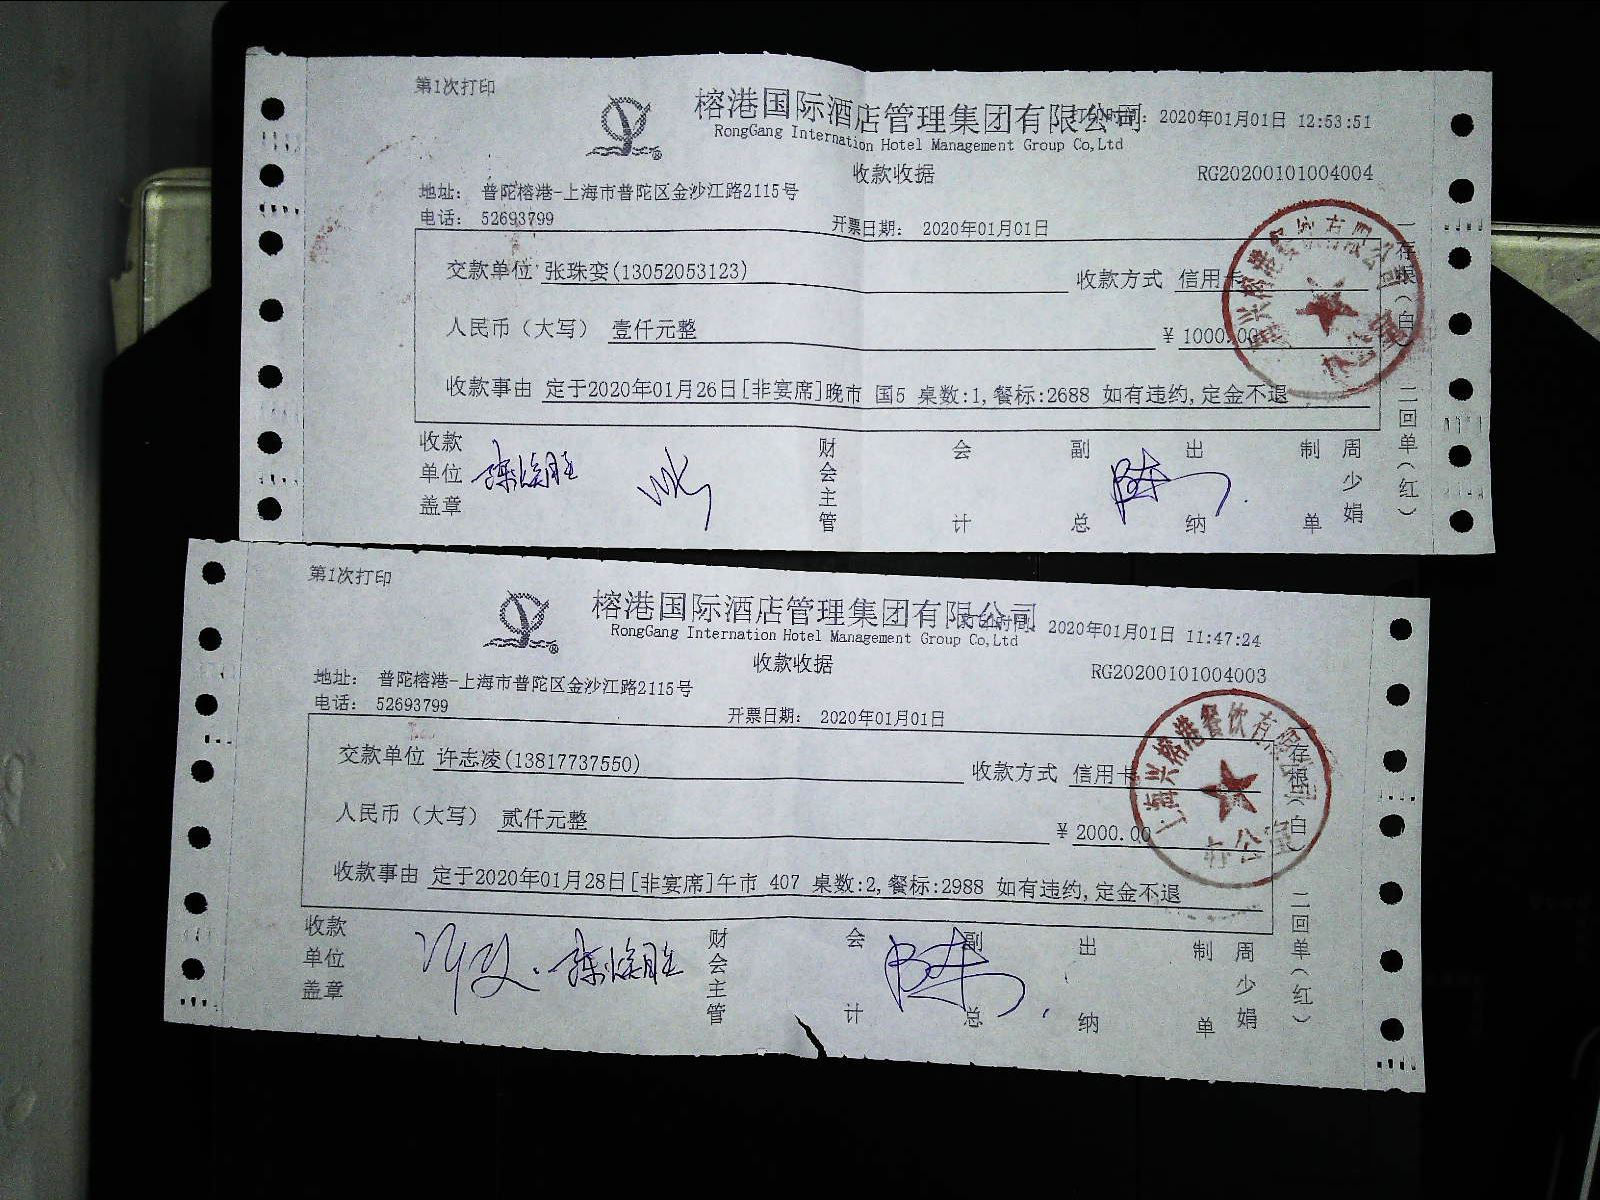 第1次打印
榕港国际酒店管理集团有限公司 打印时间: 2020年01月01日 12:53:51
RongGang Internation Hotel Management Group Co,Ltd
收款收据 RG20200101004004
地址: 普陀榕港-上海市普陀区金沙江路2115号
电话: 52693799 开票日期: 2020年01月01日
交款单位 张珠娈(13052053123) 收款方式 信用卡
人民币（大写） 壹仟元整 ¥ 1000.00
收款事由 定于2020年01月26日[非宴席]晚市 国5 桌数:1,餐标:2688 如有违约,定金不退
收款单位盖章 财会主管 会计 副总 出纳 制单 周少娟
一存根（白） 二回单（红）
兴榕港餐饮有限公司
办公室
第1次打印
榕港国际酒店管理集团有限公司 打印时间: 2020年01月01日 11:47:24
RongGang Internation Hotel Management Group Co,Ltd
收款收据 RG20200101004003
地址: 普陀榕港-上海市普陀区金沙江路2115号
电话: 52693799 开票日期: 2020年01月01日
交款单位 许志凌(13817737550) 收款方式 信用卡
人民币（大写） 贰仟元整 ¥ 2000.00
收款事由 定于2020年01月28日[非宴席]午市 407 桌数:2,餐标:2988 如有违约,定金不退
收款单位盖章 财会主管 会计 副总 出纳 制单 周少娟
一存根（白） 二回单（红）
上海兴榕港餐饮有限公司
办公室